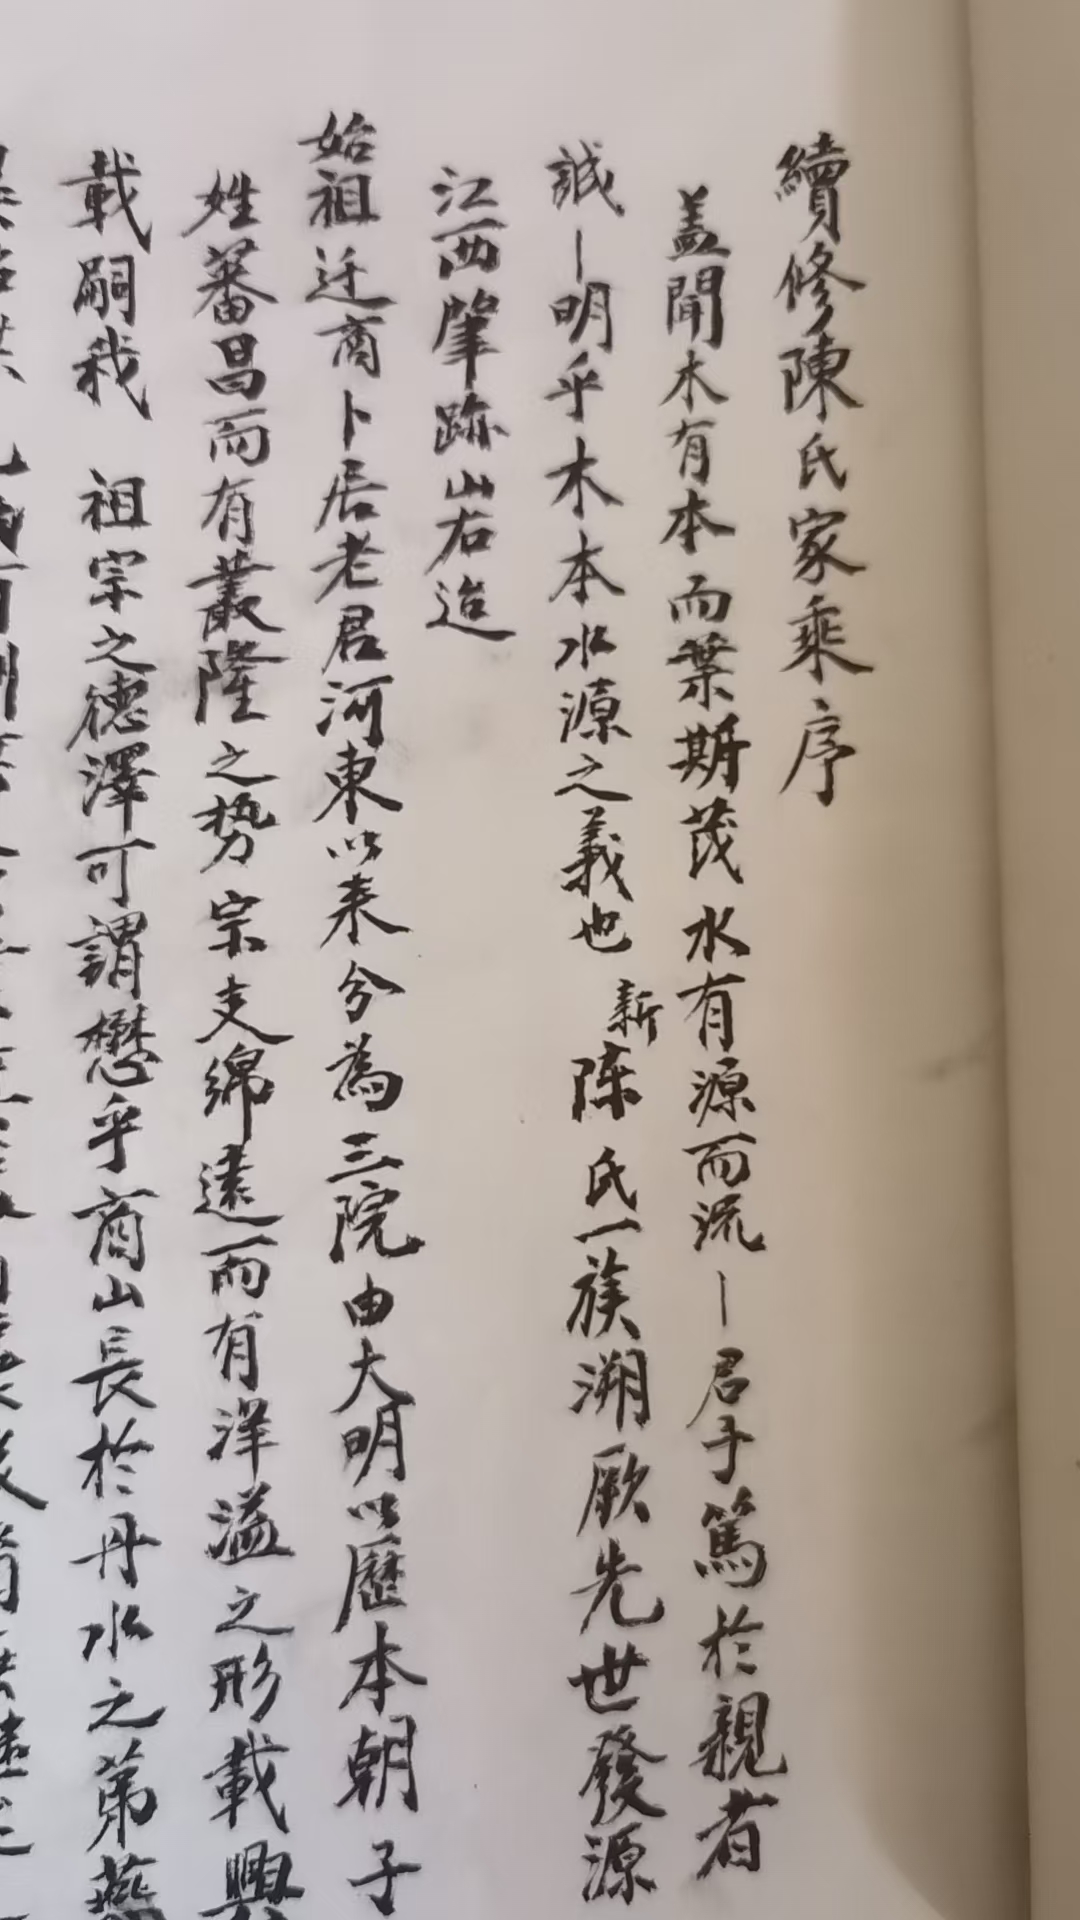 續修陳氏家乘序
蓋聞木有本而葉斯茂水有源而流一君子篤於親者
誠一明乎木本水源之義也新陈氏一族溯厥先世發源
江西肇跡山右迨
始祖迁商卜居老君河東以来分為三院由大明以歷本朝子
姓蕃昌而有叢隆之势宗支綿遠而有洋溢之形載興
載嗣我 祖宗之德澤可謂懋乎商山長於丹水之第燕